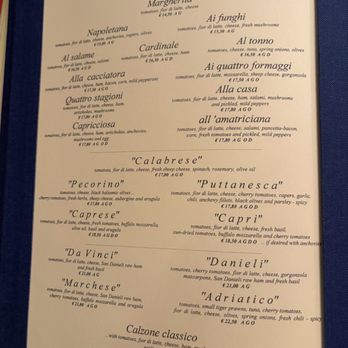 Margherita
tomatoes, fior di latte, cheese
€ 14,50 A G
Napoletana
tomatoes, fior di latte, cheese, anchovies, capers, olives
Ai funghi
tomatoes, fior di latte, cheese, fresh mushrooms
€ 15,50 A G
Al salame
tomatoes, fior di latte, cheese, salami
€ 16,50 A G
Cardinale
tomatoes, fior di latte, cheese, ham
€ 16,50 A G
Al tonno
tomatoes, cheese, tuna, spring onions, olives
€ 16,50 A G D
Alla cacciatora
tomatoes, fior di latte, cheese, ham, bacon, corn, mild pepperoni
€ 17,80 A G O
Ai quattro formaggi
tomatoes, fior di latte, mozzarella, sheep cheese, gorgonzola
€ 17,50 A G O
Quattro stagioni
tomatoes, fior di latte, cheese, ham,
artichokes, mushrooms
€ 17,80 A G O
Alla casa
tomatoes, fior di latte, cheese, ham, salami, mushrooms
and pickled, mild peppers
€ 17,80 A G O
Capricciosa
tomatoes, fior di latte, cheese, ham, artichokes, anchovies,
mushrooms and egg
€ 17,80 A G O D
all 'amatriciana
tomatoes, fior di latte, cheese, salami, pancetta-bacon,
corn, fresh tomatoes and pickled, mild peppers
€ 17,80 A G O
"Calabrese"
tomatoes, fior di latte, cheese, fresh sheep cheese, spinach, rosemary, olive oil
€ 17,80 A G O
"Pecorino"
tomatoes, cheese, black balsamic olives ,
cherry-tomatoes, fresh herbs, sheep cheese, aubergine and arugula
€ 17,80 A G O
"Puttanesca"
tomatoes, fior di latte, cheese, cherry tomatoes, capers, garlic,
chili, anchovy filets, black olives and parsley - spicy
€ 17,80 A G O D
"Caprese"
tomatoes, fior di latte, cheese, fresh tomatoes, buffalo mozzarella,
olive oil, basil and arugula
€ 18,50 A G O
"Capri"
tomatoes, fior di latte, cheese, fresh basil,
sun-dried tomatoes, buffalo mozzarella and cherry tomatoes
€ 18,50 A G O D .. if desired with anchovies
"Da Vinci"
tomatoes, fior di latte, cheese, San Danieli raw ham
and fresh basil
€ 21,00 A G
"Danieli"
tomatoes, cherry tomatoes, fior di latte, cheese, gorgonzola
mascarpone, San Danieli raw ham and fresh basil
€ 21,00 A G O
"Marchese"
tomatoes, fior di latte, cheese, San Danieli raw ham,
cherry tomatoes, buffalo mozzarella and arugula
€ 21,00 A G O
"Adriatico"
tomatoes, small tiger prawns, tuna, cherry tomatoes,
fior di latte, cheese, olives, spring onions, fresh chili - spicy
€ 22,50 A G O
Calzone classico